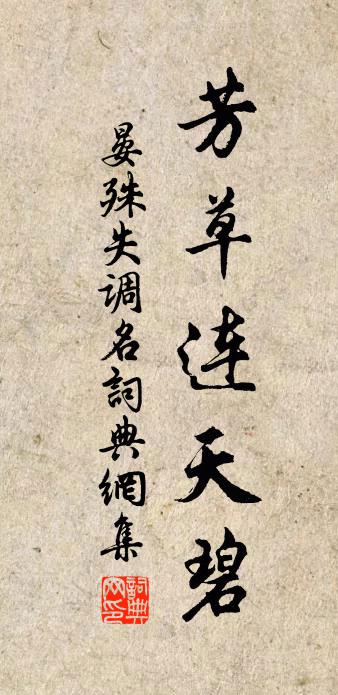 芳草连天碧
晏殊失调名詞典網集
詞典网印